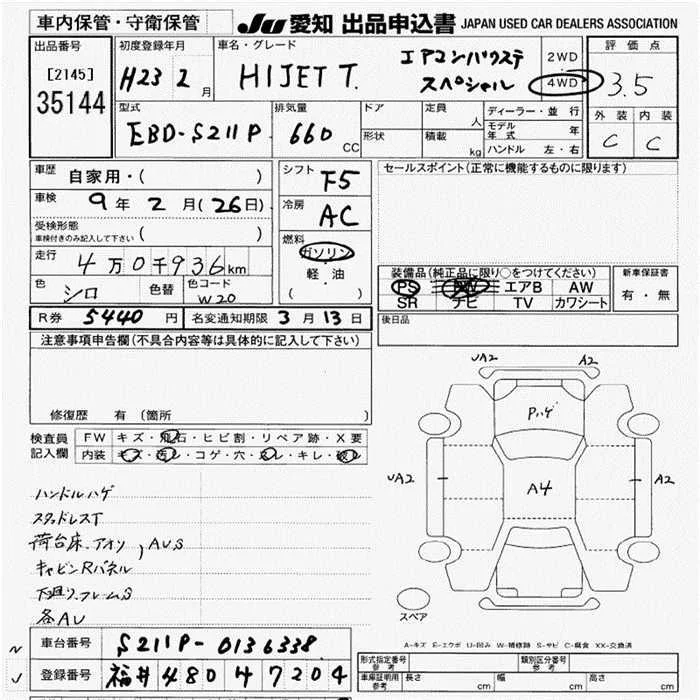 車内保管・守衛保管 JU 愛知 出品申込書 JAPAN USED CAR DEALERS ASSOCIATION
出品番号 初度登録年月 車名・グレード 評価点
[2145] H23 2月 HIJET T. エアコンパワステ 2WD
35144 スペシャル 4WD 3.5
型式 排気量 ドア 定員 ディーラー・並行 外装 内装
EBD-S211P 660 CC 形状 人 モデル年式 年 C C
積載 kg ハンドル 左・右
車歴 自家用・( ) シフト F5 セールスポイント(正常に機能するものに限ります)
車検 9年 2月(26日) 冷房 AC
受検形態
車検付きのみ記入して下さい ( )
走行 4万0千936km 燃料 ガソリン
軽・油
( )
色 シロ 色替 色コード W20
装備品(純正品に限り○をつけてください) 新車保証書
PS PW エアB AW 有・無
SR ナビ TV カワシート
R券 5440円 名変通知期限 3月13日 後日品
注意事項申告欄(不具合内容等は具体的に記入して下さい)
修復歴 有(箇所 )
検査員 FW キズ・飛石・ヒビ割・リペア跡・X要
記入欄 内装 キズ・汚レ・コゲ・穴・スレ・キレ・破レ
ハンドルハゲ
スタッドレスT
荷台床、アオリ、AUS
キャビンRパネル
下廻り、フレームS
各AU
UA2 A2
Pハゲ
UA2 A4 A2
スペア
A-キズ E-エクボ U-凹み W-補修跡 S-サビ C-腐食 XX-交換済
N 車台番号 S211P-0136338
J 登録番号 福井 480 4 7204
形式指定番号 参考 類別区分番号 参考
車庫証明用 参考 長さ cm 幅 cm 高さ cm